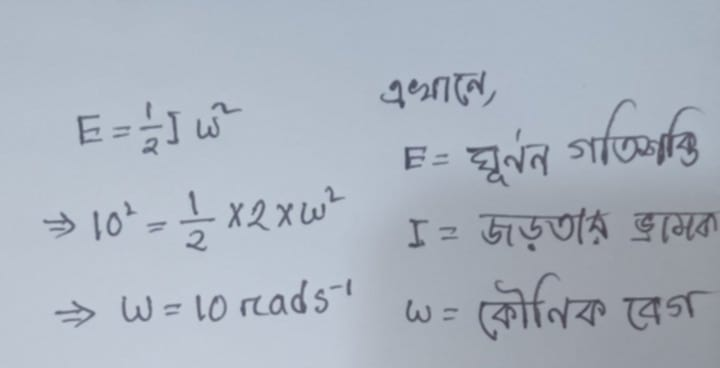 E = 1/2 I ω²
⇒ 10² = 1/2 × 2 × ω²
⇒ ω = 10 rads⁻¹
এখানে,
E = ঘূর্নন গতিশক্তি
I = জড়তার ভ্রামক
ω = কৌনিক বেগ